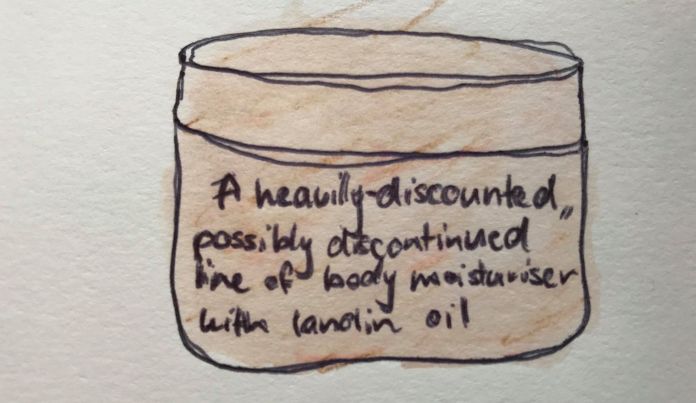 A heavilly-discounted,
possibly discontinued
line of body moisturiser
with lanolin oil